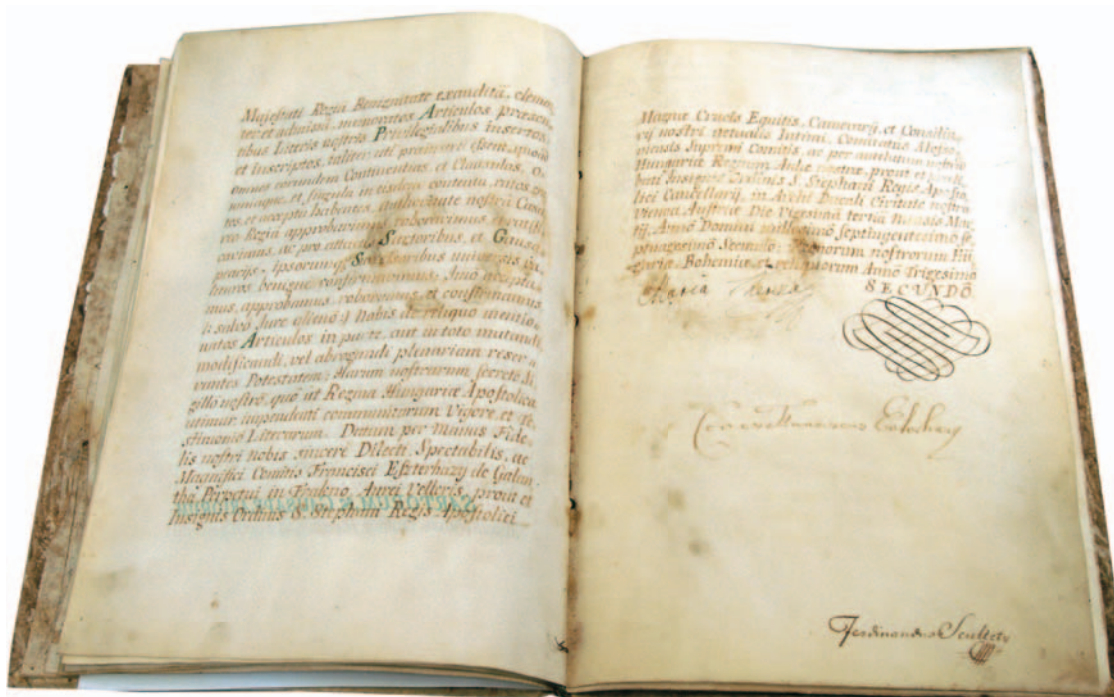 Majestati Regiâ Benignitate exauditâ, clemen-
ter et admissâ, memoratos Articulos præsen-
tibus Literis nostris Privilegialibus insertos,
et inscriptos, taliter uti præmissum est, quoad
omnes eorundem Continentias, et Clausulas,
et singula in eisdem contenta, ratos, gra-
tos, et accepta habentes, authoritate nostrâ
Regiâ approbavimus, roboravimus, ratifi-
cavimus, ac pro attactis Sartoribus, et Gausa-
pearijs, ipsorumq. Successoribus universis
benigne confirmavimus; Imò accepta-
mus, approbamus, roboramus, et confirmamus
salvô Jure alienô Nobis de reliquo memo-
ratos Articulos in parte, aut in toto mutandi,
modificandi, vel abrogandi plenariam reser-
vantes Potestatem; Harum nostrarum, secretô Si-
gillô nostrô, quô ut Regina Hungariæ Apostolica
utimur, impendenti communitarum Vigore, et Te-
stimoniô Literarum. Datum per manus Fide-
lis nostri nobis sincerè Dilecti, Spectabilis, ac
Magnifici Comitis Francisci Eszterhazy de Galan-
tha Perpetui in Fraknò, Aurei Velleris, prout et
Insignis Ordinis S. Stephani Regis Apostolici
Magnæ Crucis Equitis, Camerarij, et Consilia-
rij nostri Actualis Intimi, Comitatus Moso-
niensis Supremi Comitis, ac per antelatum nostrum
Hungariæ Regnum Aulæ nostræ, prout et
dicti Insignis Ordinis S. Stephani Regis Aposto-
lici Cancellarij, in Archi Ducali Civitate nostra
Vienna Austriæ Die Vigesimâ tertiâ Mensis Mar-
tij, Annô Domini millesimô septingentesimô se-
ptuagesimô Secundô; Regnorum nostrorum Hun-
gariæ, Bohemiæ, et reliquorum Annô Trigesimô
SECUNDÔ
Maria Theresia
Eszterhazy
Ferdinandus Skultety